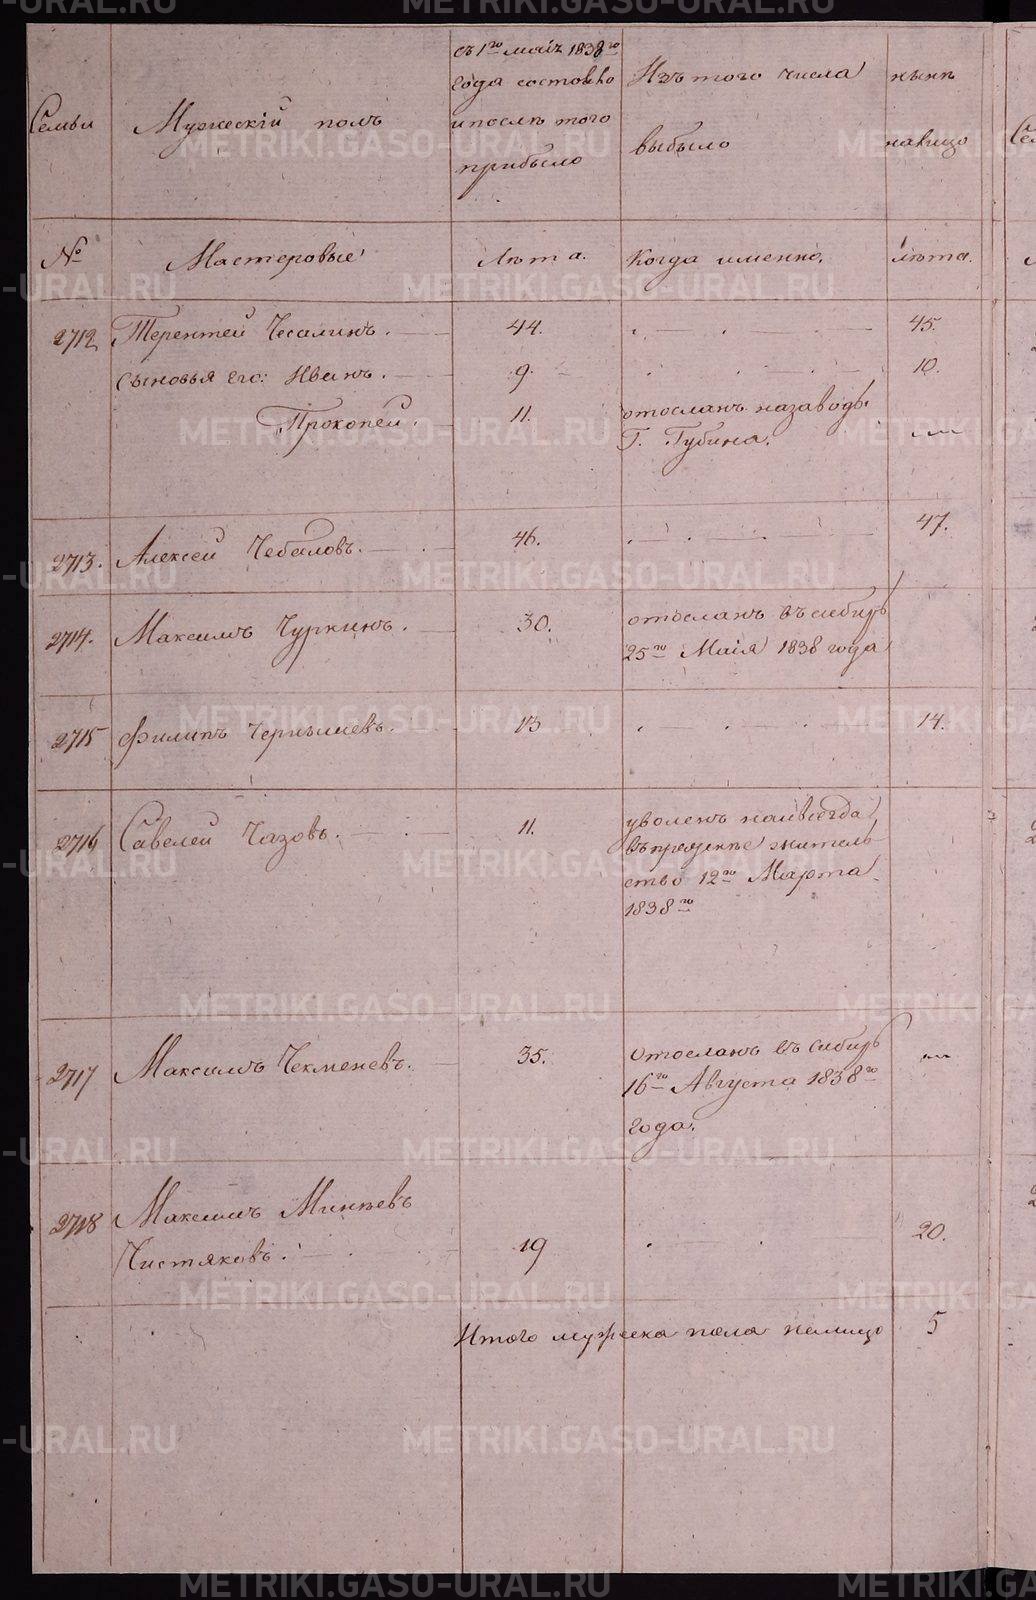 METRIKI.GASO-URAL.RU
Семьи
Мужескій полъ
съ 1го маія 1838го
года состояло
и после того
прибыло
Изъ того числа
выбыло
ныне
налицо
№
Мастеровые
Лета.
Когда именно.
лета.
2712
Терентей Чесалинъ.
44.
45.
Сыновья его: Иванъ.
9.
10.
Прокопей.
11.
отосланъ на заводъ
Г. Губина.
2713.
Алексей Чебаловъ.
46.
47.
2714.
Максимъ Чуркинъ.
30.
отосланъ въ сибирь
25го Маія 1838 года
2715
Филипъ Чернышевъ.
13
14.
2716
Савелей Чазовъ.
11.
уволенъ навсегда
въ прежнѣе житель
ство 12го Марта
1838го
2717
Максимъ Чекменевъ.
35.
отосланъ въ сибирь
16го Августа 1838го
года.
2718
Максимъ Минѣевъ
Чистяковъ.
19
20.
Итого мужеска пола налицо
5